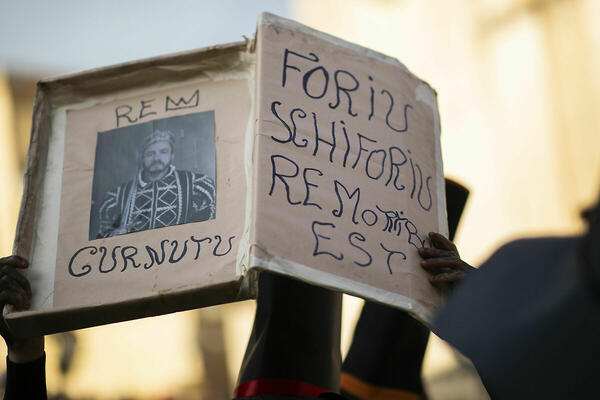 REM
CURNUTU
FÒRIU
SCHIFORIU
REMORIRI
EST